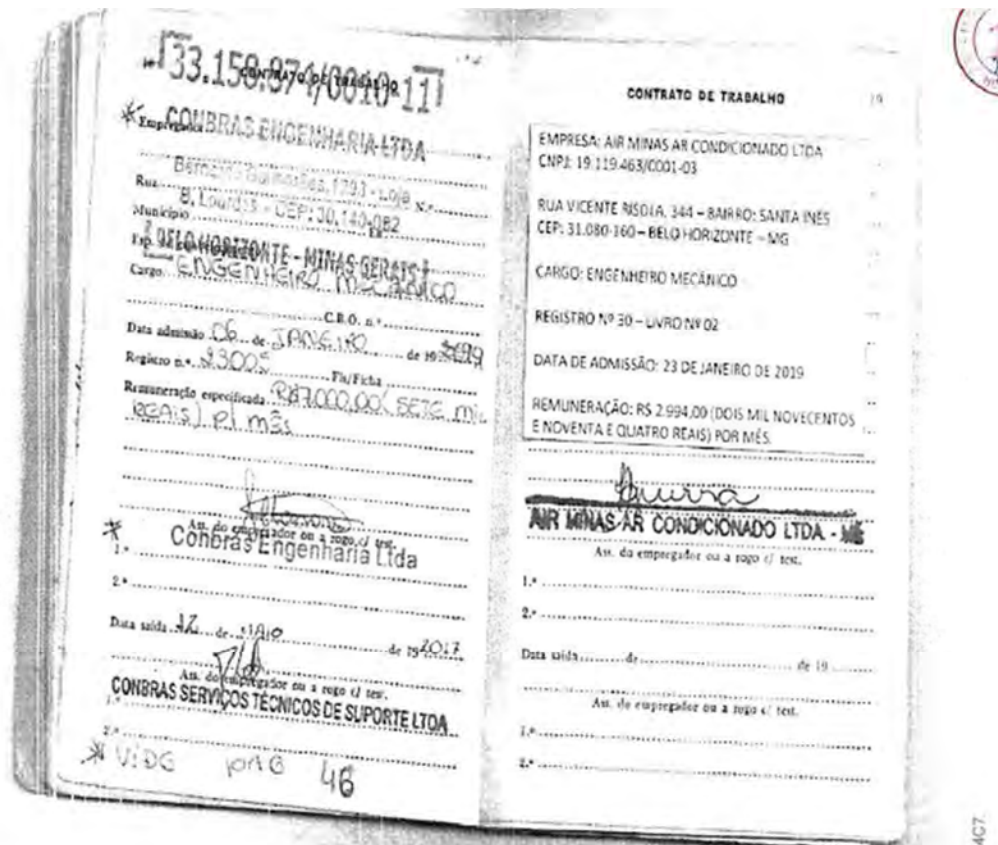 33.158.874/0010-11
CONTRATO DE TRABALHO
* Empregador CONBRAS ENGENHARIA LTDA
Bernardo Guimarães, 1793 - Loja
Rua N.º
B. Lourdes - CEP: 30.140-082
Município Est.
BELO HORIZONTE - MINAS GERAIS
Cargo ENGENHEIRO MECÂNICO
C.B.O. n.º
Data admissão 06 de JANEIRO de 19
Registro n.º Fls/Ficha
Remuneração especificada R$7.000,00 (SETE MIL
REAIS) P/ MÊS
Ass. do empregador ou a rogo c/ test.
* Conbras Engenharia Ltda
1.º
2.º
Data saída 12 de MAIO de 19 2017
Ass. do empregador ou a rogo c/ test.
CONBRAS SERVIÇOS TÉCNICOS DE SUPORTE LTDA
1.º
2.º
* VIDE PAG 46
CONTRATO DE TRABALHO 19
EMPRESA: AIR MINAS AR CONDICIONADO LTDA
CNPJ: 19.119.463/0001-03
RUA VICENTE RISOLA, 344 – BAIRRO: SANTA INÊS
CEP: 31.080-160 – BELO HORIZONTE – MG
CARGO: ENGENHEIRO MECÂNICO
REGISTRO Nº 30 – LIVRO Nº 02
DATA DE ADMISSÃO: 23 DE JANEIRO DE 2019
REMUNERAÇÃO: R$ 2.994,00 (DOIS MIL NOVECENTOS
E NOVENTA E QUATRO REAIS) POR MÊS.
AIR MINAS AR CONDICIONADO LTDA. - ME
Ass. do empregador ou a rogo c/ test.
1.º
2.º
Data saída de de 19
Ass. do empregador ou a rogo c/ test.
1.º
2.º
4C7.